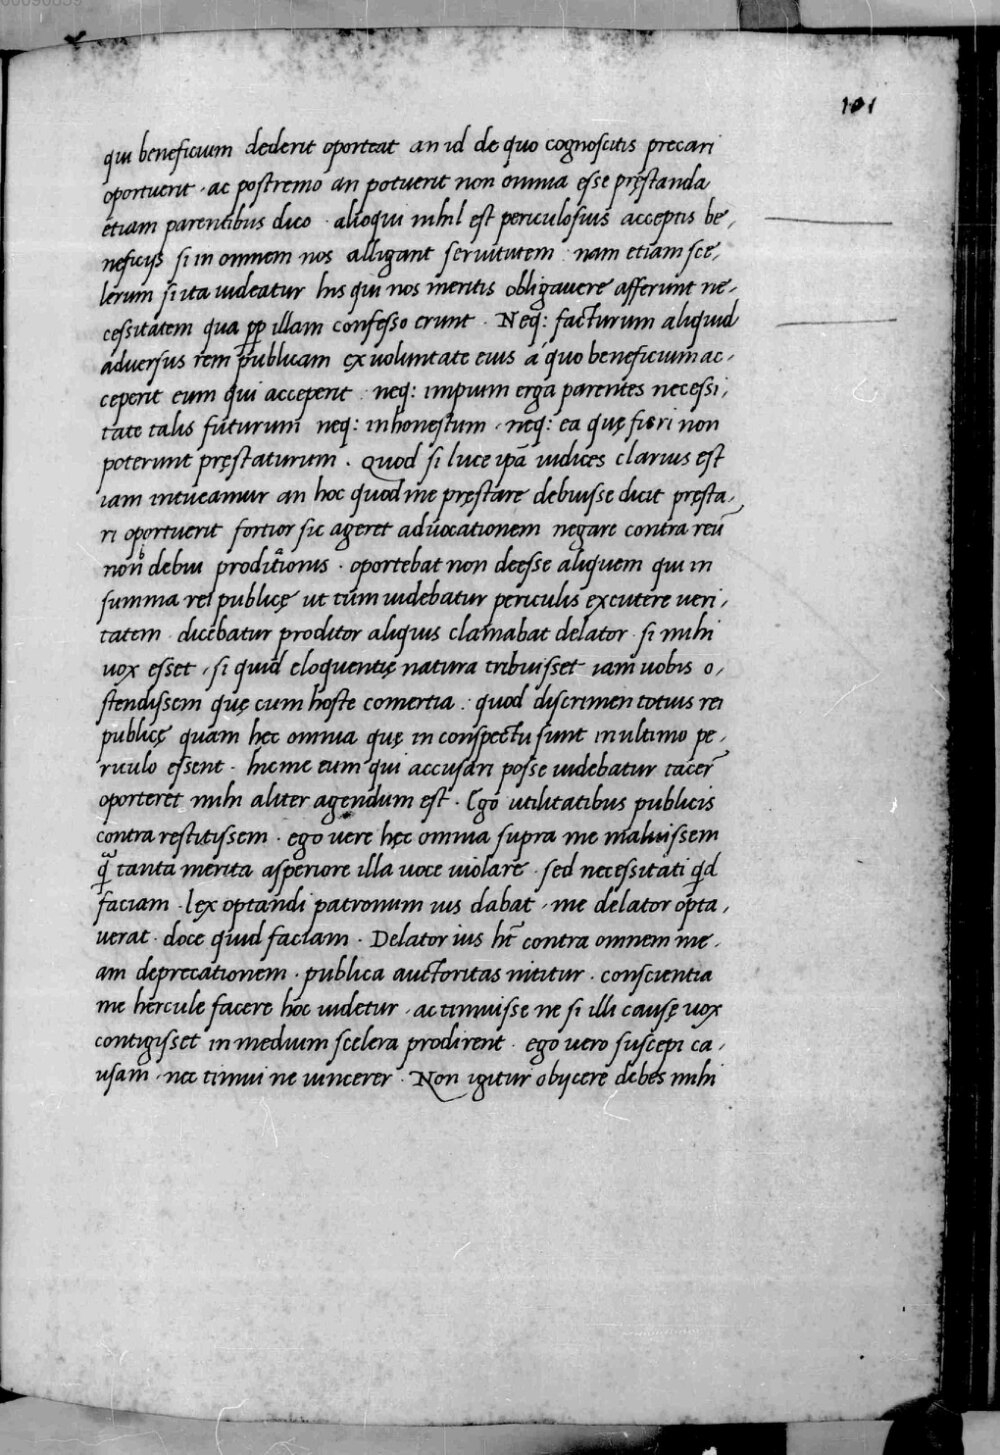 101
qui beneficium dederit oporteat an id de quo cognoscitis precari
oportuerit · ac postremo an potuerit non omnia esse pręstanda
etiam parentibus dico · alioqui nihil est periculosius acceptis be,
neficijs si in omnem nos alligant seruitutem · nam etiam sce,
lerum si ita uideatur his qui nos meritis obligauere afferunt ne,
cessitatem qua pp illam confesso erunt · Neq: facturum aliquid
aduersus rem publicam ex uoluntate eius á quo beneficium ac,
ceperit eum qui acceperit · neq: impium erga parentes necessi,
tate talis futurum neq: inhonestum · neq: ea quę fieri non
poterunt pręstaturum · Quod si luce ipā iudices clarius est
iam intueamur an hoc quod me pręstare debuisse dicit pręsta,
ri oportuerit fortior sic ageret aduocationem negare contra reū
non debui proditionis · oportebat non deesse aliquem qui in
summa rei publicę ut tum uidebatur periculis excutere ueri,
tatem · dicebatur proditor aliquis clamabat delator · si mihi
uox esset · si quid eloquentię natura tribuisset iam uobis o,
stendissem quę cum hoste comertia · quod discrimen totius rei
publicę quam hec omnia quę in conspectu sunt in ultimo pe,
riculo essent · hic me eum qui accusari posse uidebatur tacer̄
oporteret mihi aliter agendum est · Ego utilitatibus publicis
contra restitissem · ego uere hęc omnia supra me maluissem
q̄ tanta merita asperiore illa uoce uiolare · sed necessitati qd
faciam · lex optandi patronum ius dabat · me delator opta,
uerat · doce quid faciam · Delator ius ht̄ contra omnem me,
am deprecationem · publica auctoritas nititur · conscientia
me hercule facere hoc uidetur · ac timuisse ne si illi causę uox
contigisset in medium scelera prodirent · ego uero suscepi ca,
usam · nec timui ne uincerer · Non igitur obijcere debes mihi